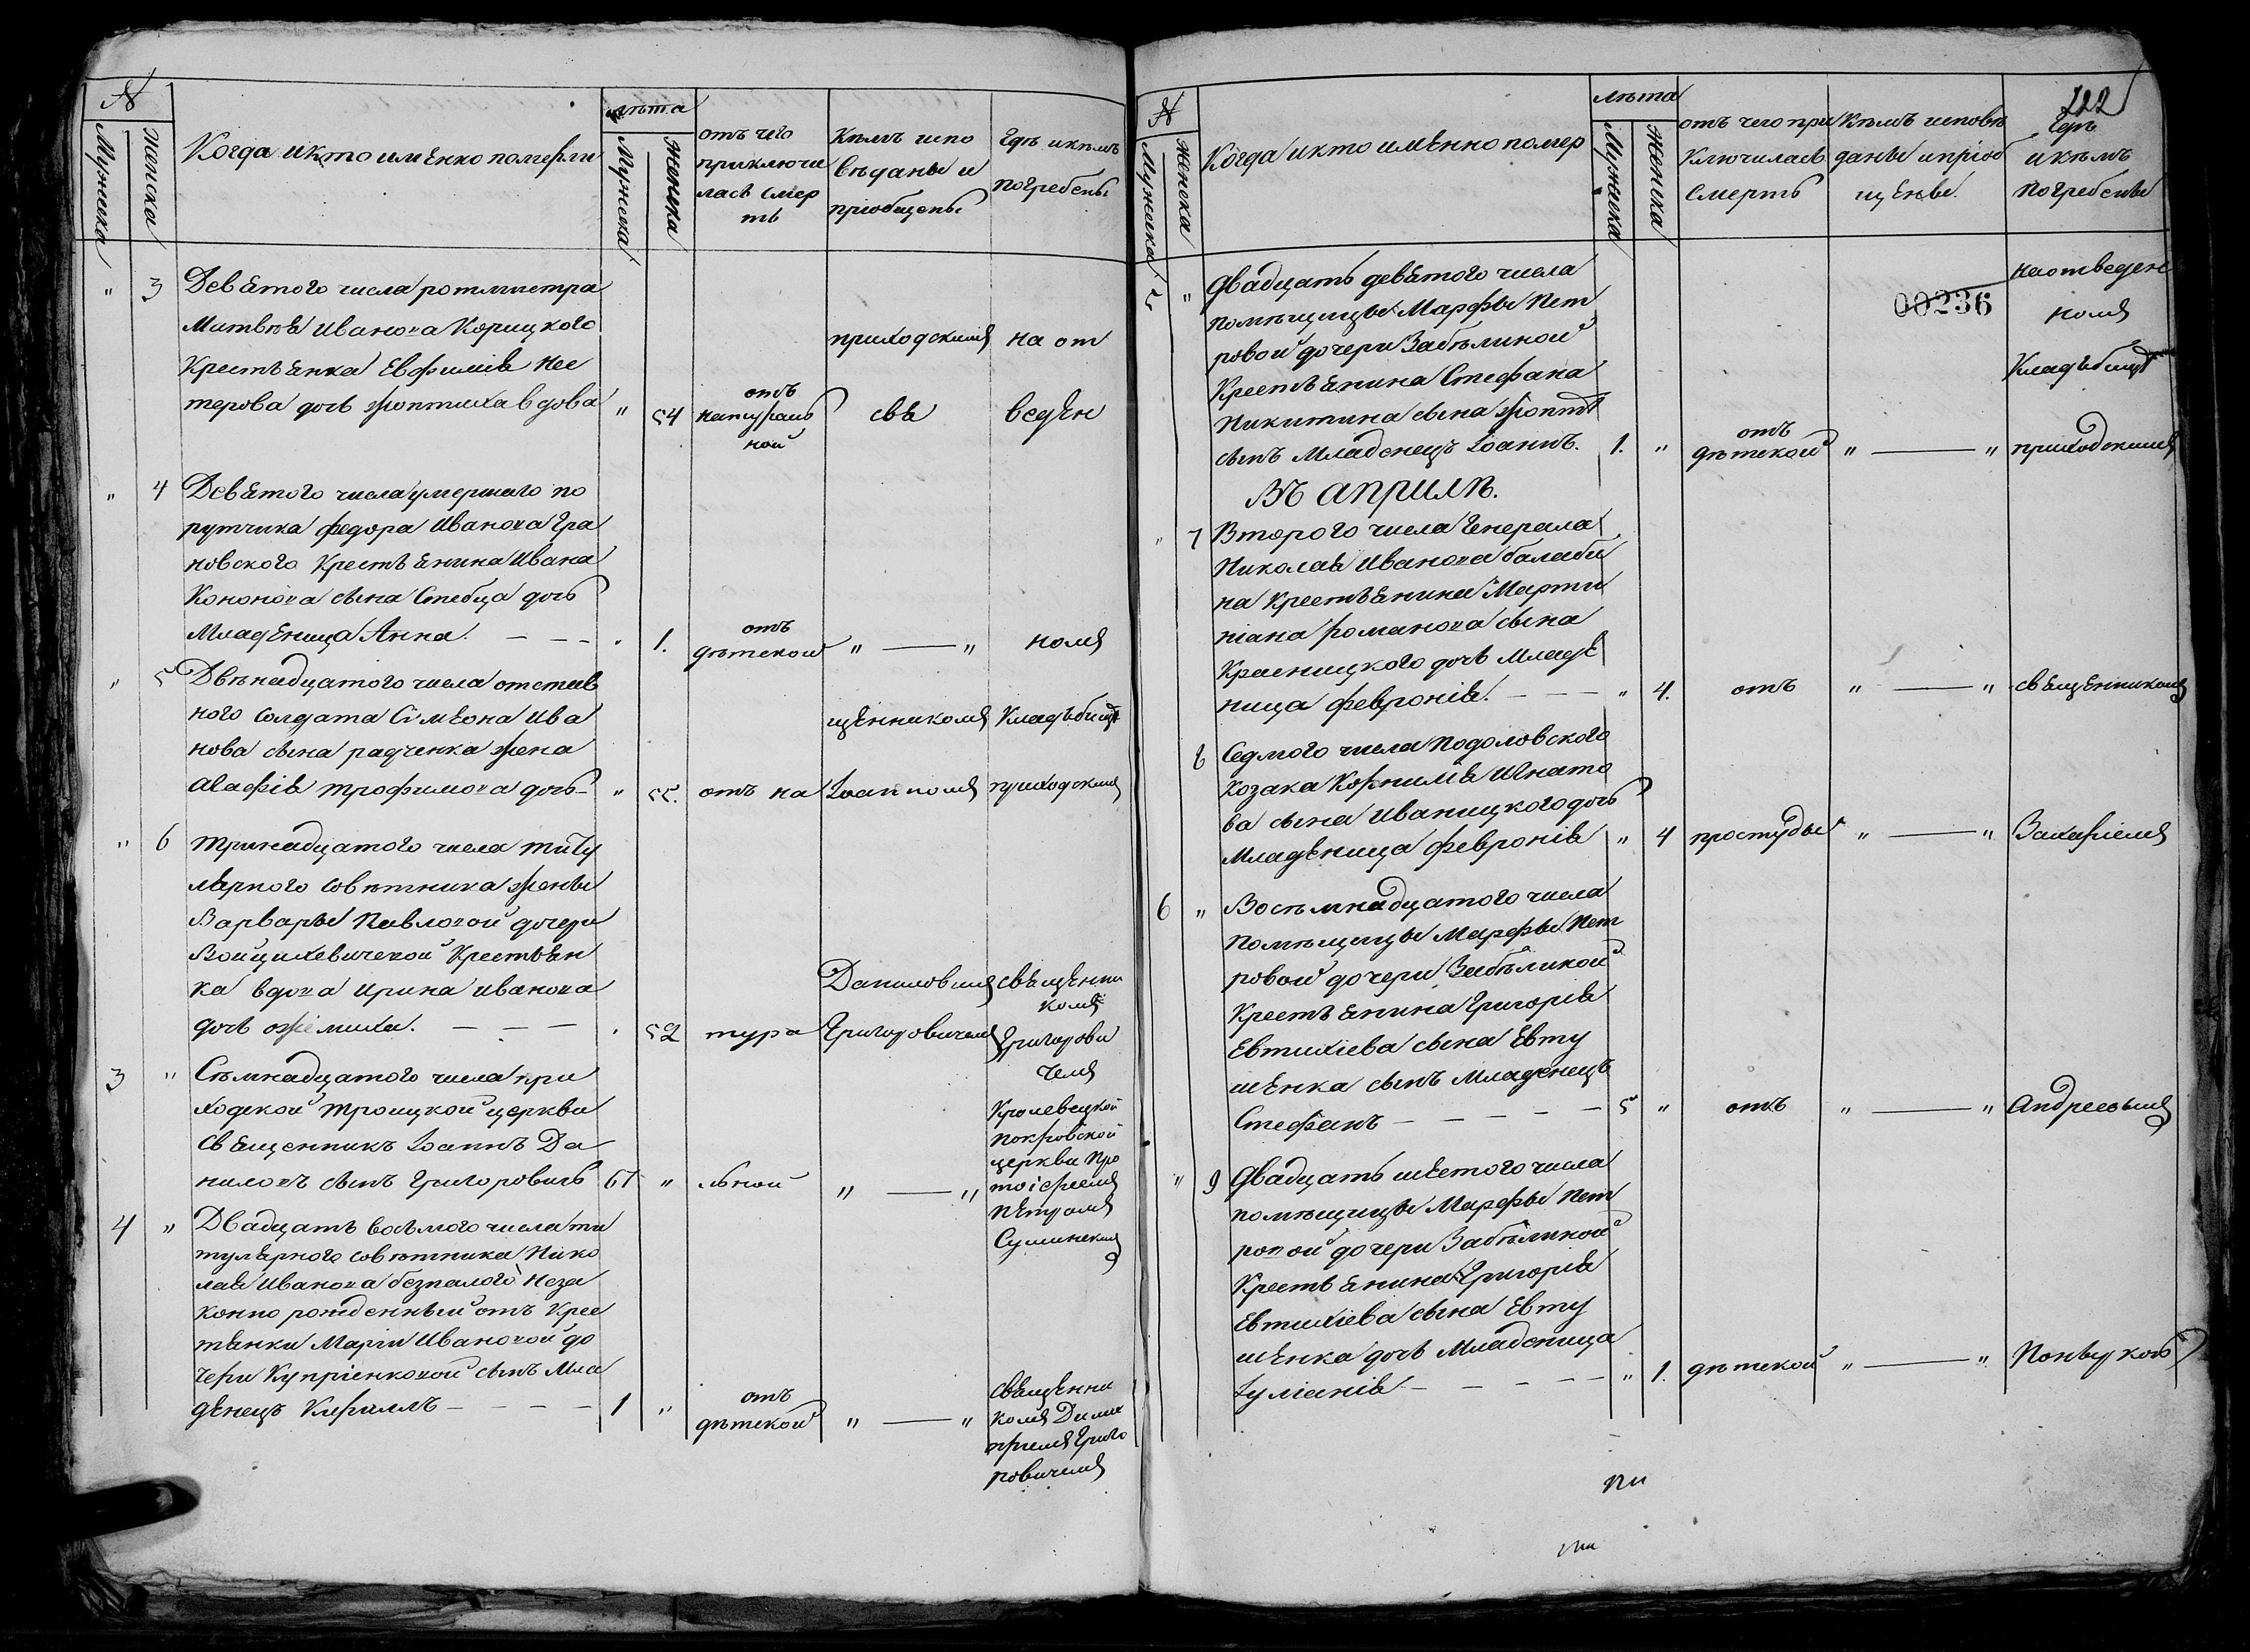 №
Мужеска
Женска
Когда и кто именно померли
лѣта
Мужеска
Женска
отъ чего
приключи
лась смер
ть
Кѣмъ испо
вѣданы и
пріобщены
Гдѣ и кѣмъ
погребены
" 3 Девятого числа ротмистра
Матвѣя Иванова Корицкого
Крестьянка Евфимія Нес
терова дочь вдова " 54
отъ
натураль
ной
приходскимъ
свя
на от
веден
" 4 Девятого числа умершаго по
рутчика Федора Иванова Гра
новского Крестьянина Ивана
Кононова сына Стебца дочь
Младеница Анна. — — — . 1.
отъ
дѣтской " — " номъ
" 5 Двѣнадцатого числа отстав
ного солдата Сімеона Ива
нова сына радченка жена
Агафія трофимова дочь — " 55. отъ на
щенникомъ
Іоанномъ
Кладъбищѣ
приходскимъ
" 6 тринадцатого числа титу
лярного совѣтника жены
Варвары Павловой дочери
Войцихевичевой Крестьян
ка вдова Ирина Иванова
дочь . — — — . 52 тура
Даниловымъ
Григоровичемъ
священни
комъ
Григорови
чемъ
3 " Сѣмнадцатого числа при
ходской троицкой церкви
священникъ Іоаннъ Да
ниловъ сынъ Григоровичь 67 " льной " — "
Кролевецкой
покровской
церкви про
тоіереемъ
Петромъ
Суминскимъ
4 " Двадцать восьмого числа ти
тулярного совѣтника Нико
лая Иванова безпалого неза
конно рожденный отъ Крес
тянки Маріи Ивановой до
чери Купріенковой сынъ Мла
денецъ Кириллъ — — — — 1 "
отъ
дѣтской " — "
священни
комъ Дими
тріемъ Григо
ровичемъ
№
Мужеска
Женска
Когда и кто именно помер
лѣта
Мужеска
Женска
отъ чего при
ключилась
смерть
Кѣмъ исповѣ
даны и пріоб
щены.
222
Гдѣ
и кѣмъ
погребены
00236
5 " Двадцать девятого числа
помѣщицы Марфы Пет
ровой дочери Забѣлиной
Крестьянина Стефана
Никитина сына
сынъ Младенецъ Іоаннъ. 1. "
отъ
дѣтской " — "
на отведен
номъ
Кладъбищѣ
приходскимъ
Въ априлѣ.
" 7 Второго числа Генерала
Николая Иванова балаби
на крестьянина Марти
ніана романова сына
Красницкого дочь Младе
ница Февронія. — — — " 4. отъ " — " священникомъ
8 Седмого числа подоловского
Козака Корнилія Игнато
ва сына Иваницкого дочь
Младеница Февронія " 4 простуды " — " Захаріемъ
6 " Восемнадцатого числа
помѣщицы Марфы Пет
ровой дочери Забѣлиной
Крестьянина Григорія
Евтихіева сына Евту
шенка сынъ Младенецъ
Стефанъ — — — — 5 " отъ " — " Андреевымъ
" 9 Двадцать шестого числа
помѣщицы Марфы Пет
ровой дочери Забѣлиной
Крестьянина Григорія
Евтихіева сына Евту
шенка дочь Младеница
Іуліанія — — — — — " 1. дѣтской " — "